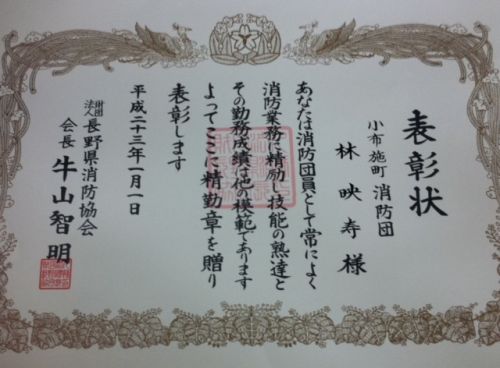 表彰状
小布施町 消防団
林 映寿 様
あなたは消防団員として常によく
消防業務に精励し技能の熟達と
その勤務成績は他の模範であります
よってここに精勤章を贈り
表彰します
平成二十三年一月一日
財団法人 長野県消防協会
会長 牛山智明